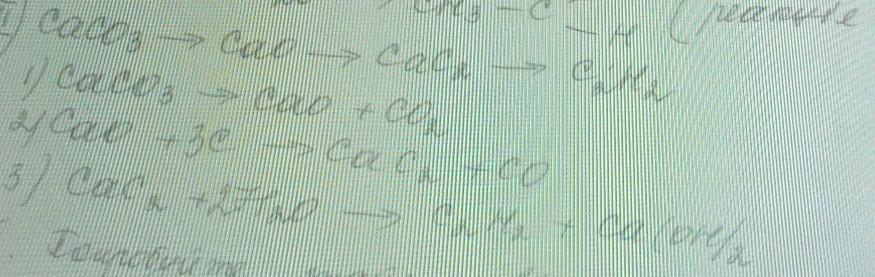 CH3 - C - H (реакция
CaCO3 → CaO → CaC2 → C2H2
1) CaCO3 → CaO + CO2
2) CaO + 3C → CaC2 + CO
3) CaC2 + 2H2O → C2H2 + Ca(OH)2